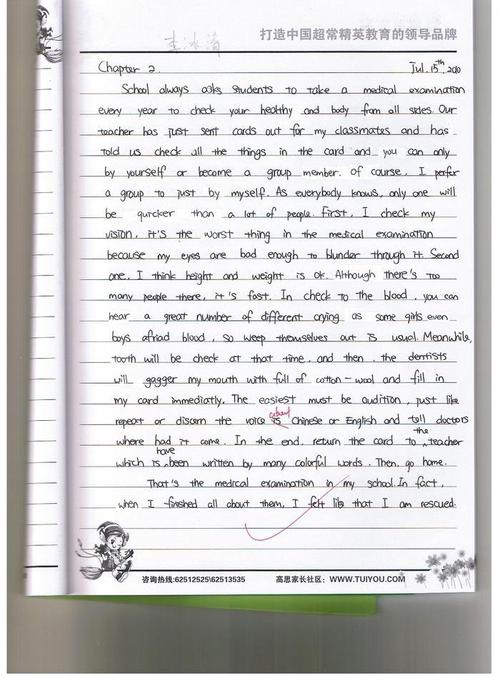 打造中国超常精英教育的领导品牌
李冰清
Chapter 2. Jul. 15th, 2010
School always asks students to take a medical examination
every year to check your healthy and body from all sides. Our
teacher has just sent cards out for my classmates and has
told us check all the things in the card and you can only
by yourself or become a group member. of course, I perfer
a group to just by myself. As everybody knows, only one will
be quicker than a lot of people. First, I check my
vision, it's the worst thing in the medical examination
because my eyes are bad enough to blunder through it. Second
one, I think height and weight is ok. Although there's too
many people there, it's fast. In check to the blood, you can
hear a great number of different crying as some girls even
boys afriad blood, so weep themselves out is usual. Meanwhile,
tooth will be check at that time, and then, the dentists
will gagger my mouth with full of cotton-wool and fill in
my card immediatly. The easiest must be audition, just like
repeat or discern the voice is Chinese or English and tell doctors
where had it come. In the end, return the card to the teacher
which is have been written by many colorful words. Then, go home.
That's the medical examination in my school. In fact,
when I finished all about them, I felt like that I am rescued.
咨询热线:62512525\62513535 高思家长社区: WWW.TUIYOU.COM